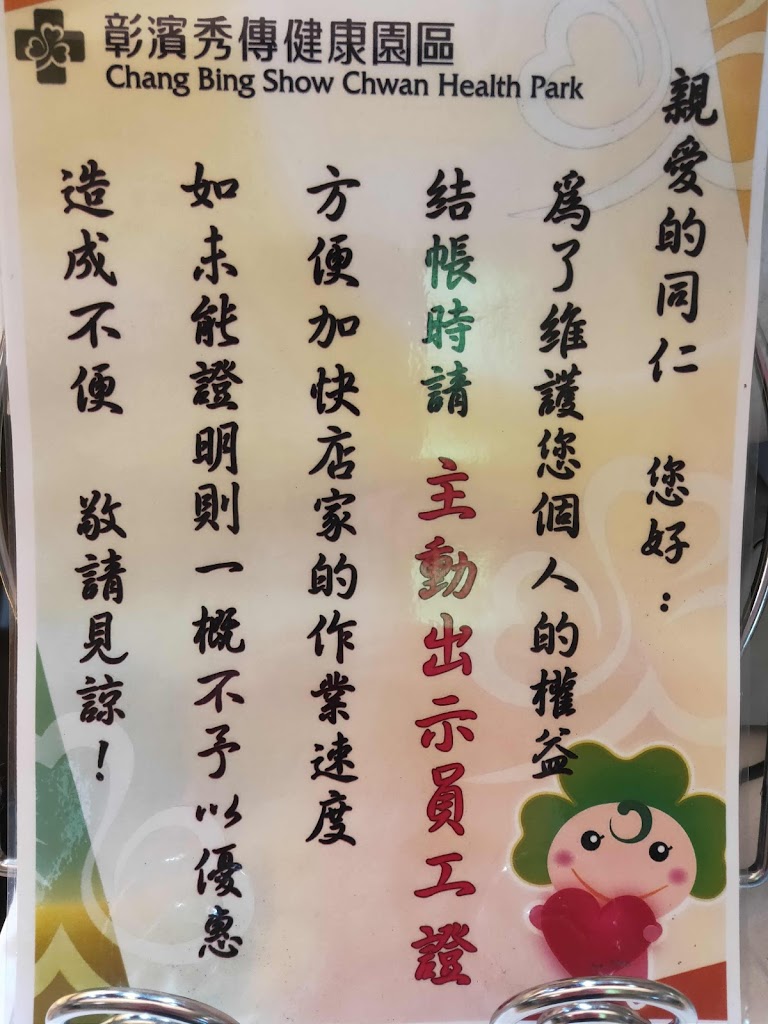 彰濱秀傳健康園區
Chang Bing Show Chwan Health Park
親愛的同仁 您好：
為了維護您個人的權益
結帳時請 主動出示員工證
方便加快店家的作業速度
如未能證明則一概不予以優惠
造成不便 敬請見諒！